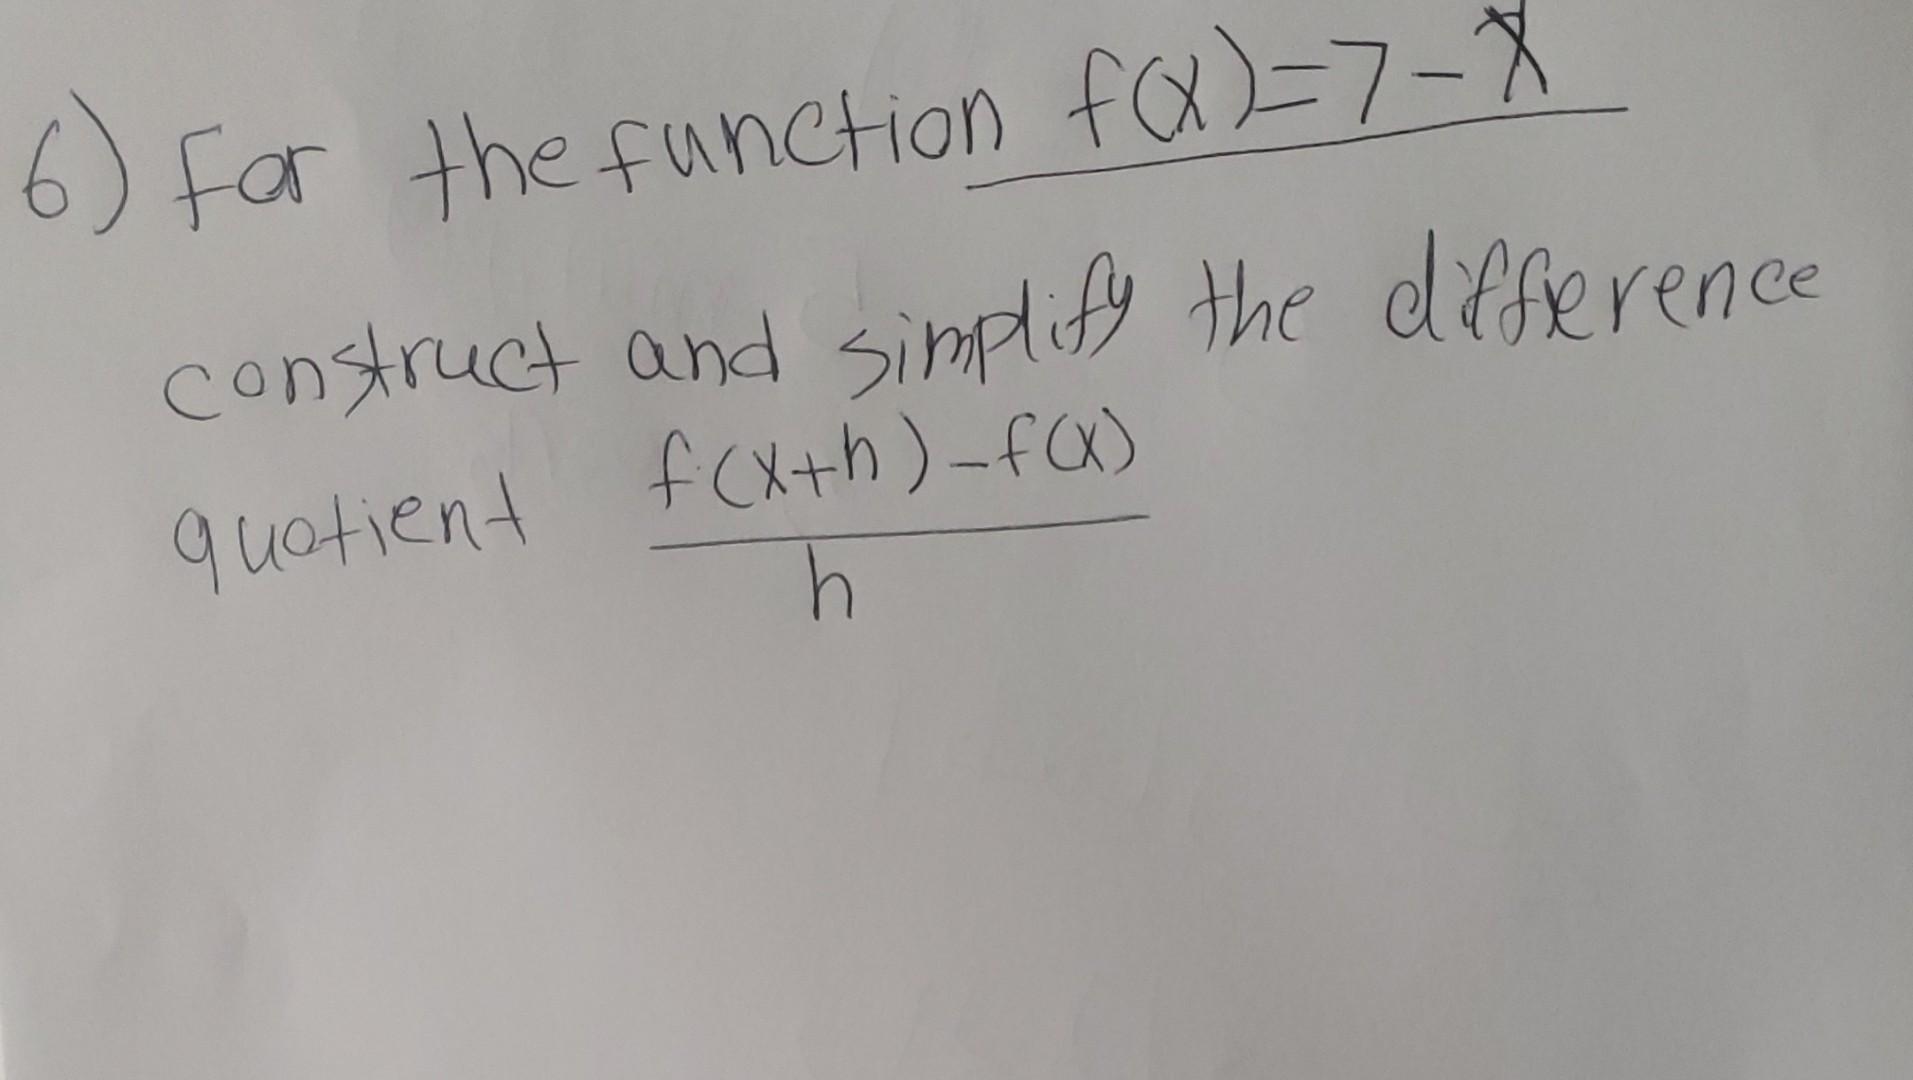 6) For the function f(x)=7-x
construct and simplify the difference
quotient f(x+h)-f(x)
h